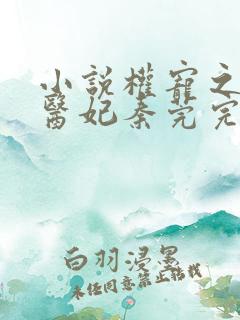 小說權寵之
醫妃秦芫完
白羽浸墨
未经同意禁止转载